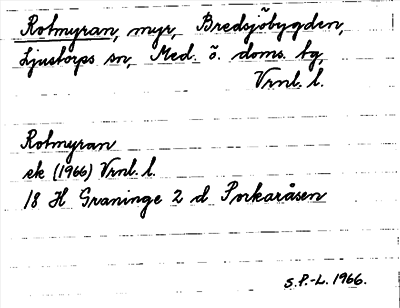 Rotmyran, myr, Bredsjöbygden,
Ljustorps sn, Med. ö. doms. tg,
Vrnl. l.
Rotmyran
ek (1966) Vrnl. l.
18 H Graninge 2 d Porkaråsen
S.P.-L. 1966.